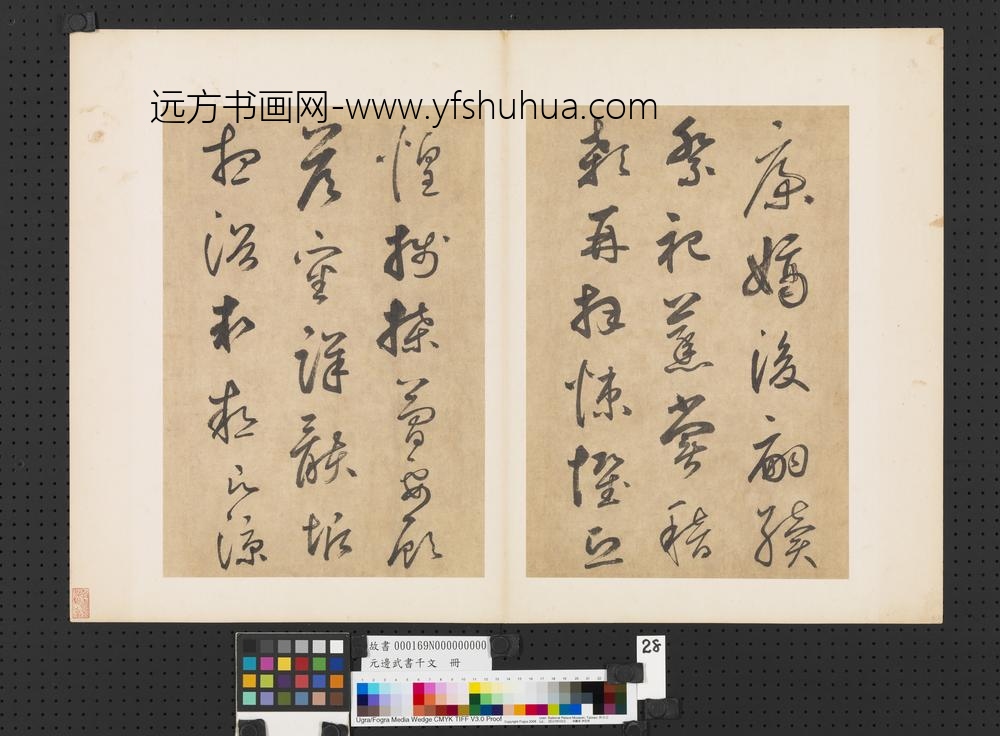 远方书画网-www.yfshuhua.com
康嫡後嗣續
祭祀蒸嘗稽
顙再拜悚懼恐
惶牋牒簡要顧
答審詳骸垢
想浴執熱願涼
故書 000169N000000000
元邊武書千文 冊
28
Ugra/Fogra Media Wedge CMYK TIFF V3.0 Proof